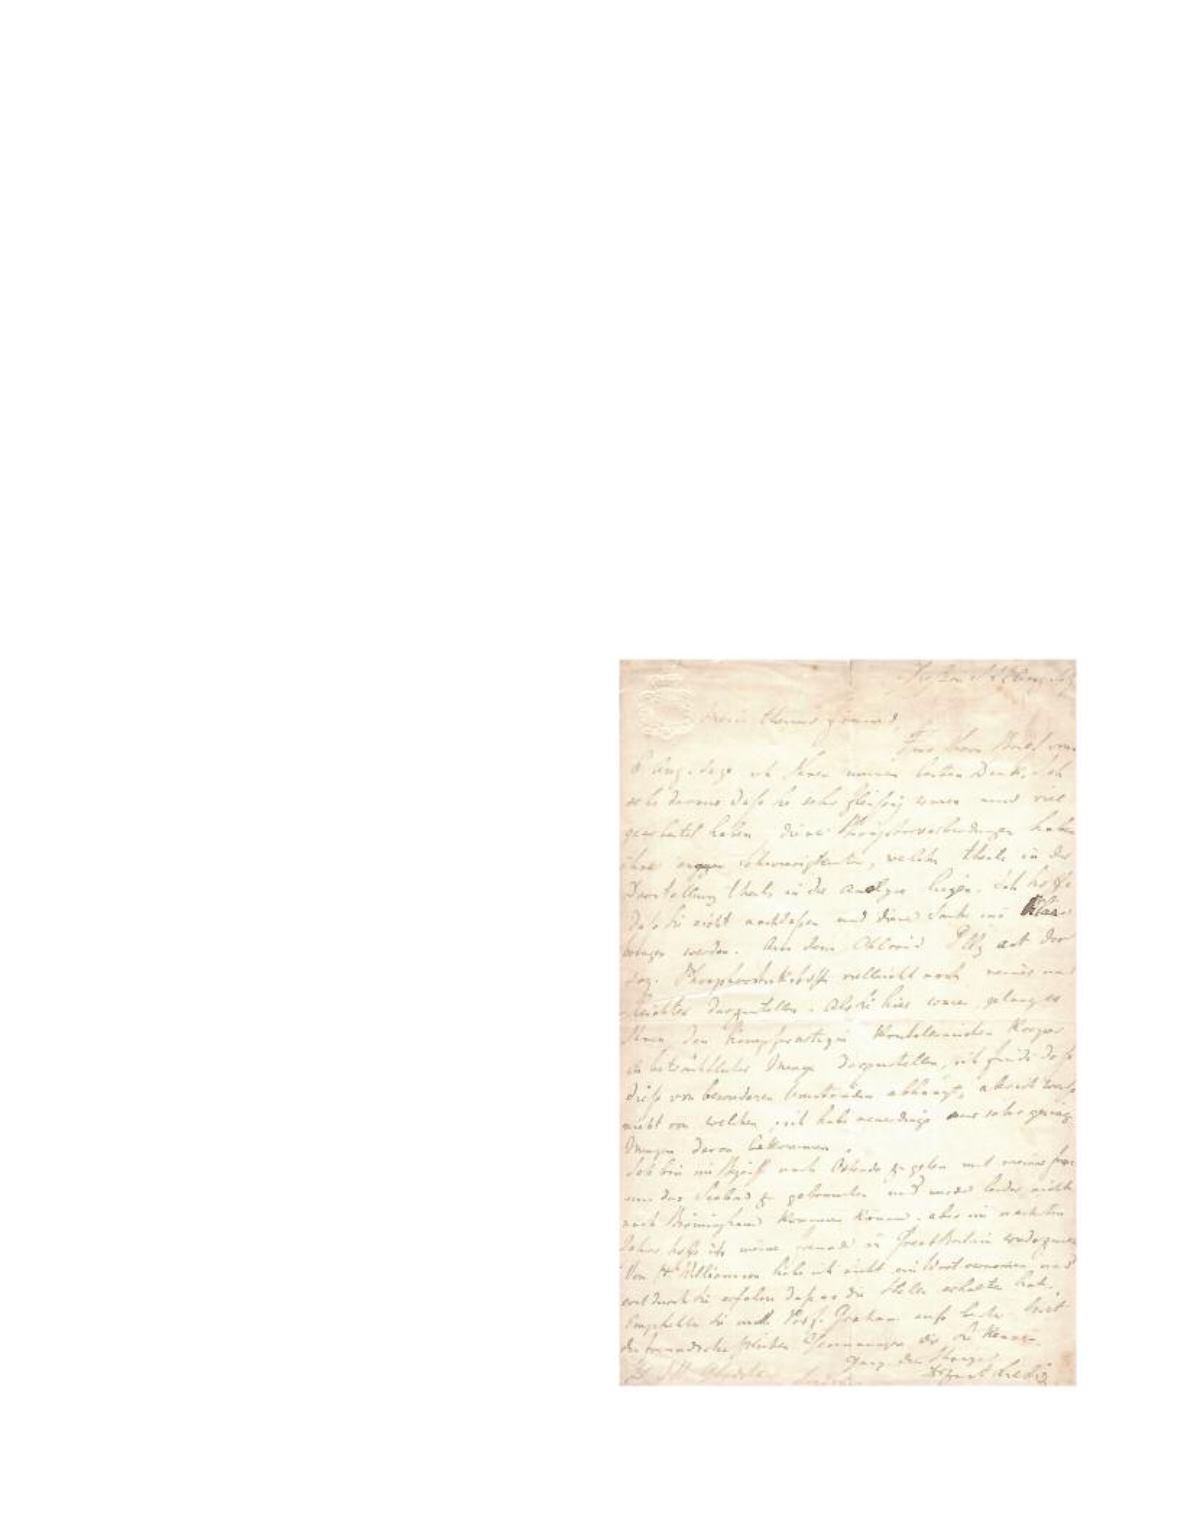 Mein theurer Freund,
Für Ihren Brief vom
8 Aug. sage ich Ihnen meinen besten Dank. Ich
sehe daraus daß Sie sehr fleißig waren und viel
gearbeitet haben, diese Phosphorverbindungen haben
ihre Schwierigkeiten, welche theils in der
Darstellung theils in der Analyse liegen. Ich hoffe
daß Sie nicht nachlaßen und diese Sache ins Klare
bringen werden. Aus dem Chlorid mit
sog. Phosphorstickstoff vielleicht noch reiner und
leichter darzustellen. Als Sie hier waren, gelang es
Ihnen den Körper
in beträchtlicher Menge darzustellen, ich finde daß
dieß von besonderen Umständen abhängt, aber ich weiß
nicht von welchen, ich habe neuerdings nur sehr geringe
Mengen davon bekommen.
Ich bin im Begriff nach Ostende zu gehen mit meiner Frau
um das Seebad zu gebrauchen und werde leider nicht
nach Birmingham kommen können. aber im nächsten
Jahre hoffe ich meine Freunde in Great Britain wiederzusehen
Von Williamson habe ich nicht ein Wort vernommen, und
erst durch Sie erfahren daß er die Stelle erhalten hat.
Empfehlen Sie mich Prof. Graham aufs beste
die freundschaftlichen Gesinnungen die Sie kennen
Ganz der Ihrige
Liebig